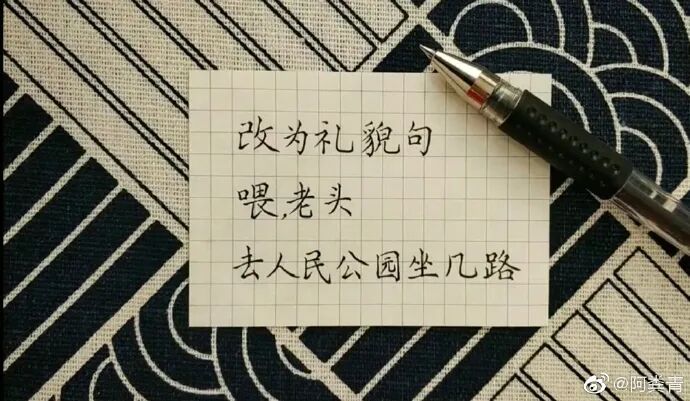 改为礼貌句
喂,老头
去人民公园坐几路
@阿粪青